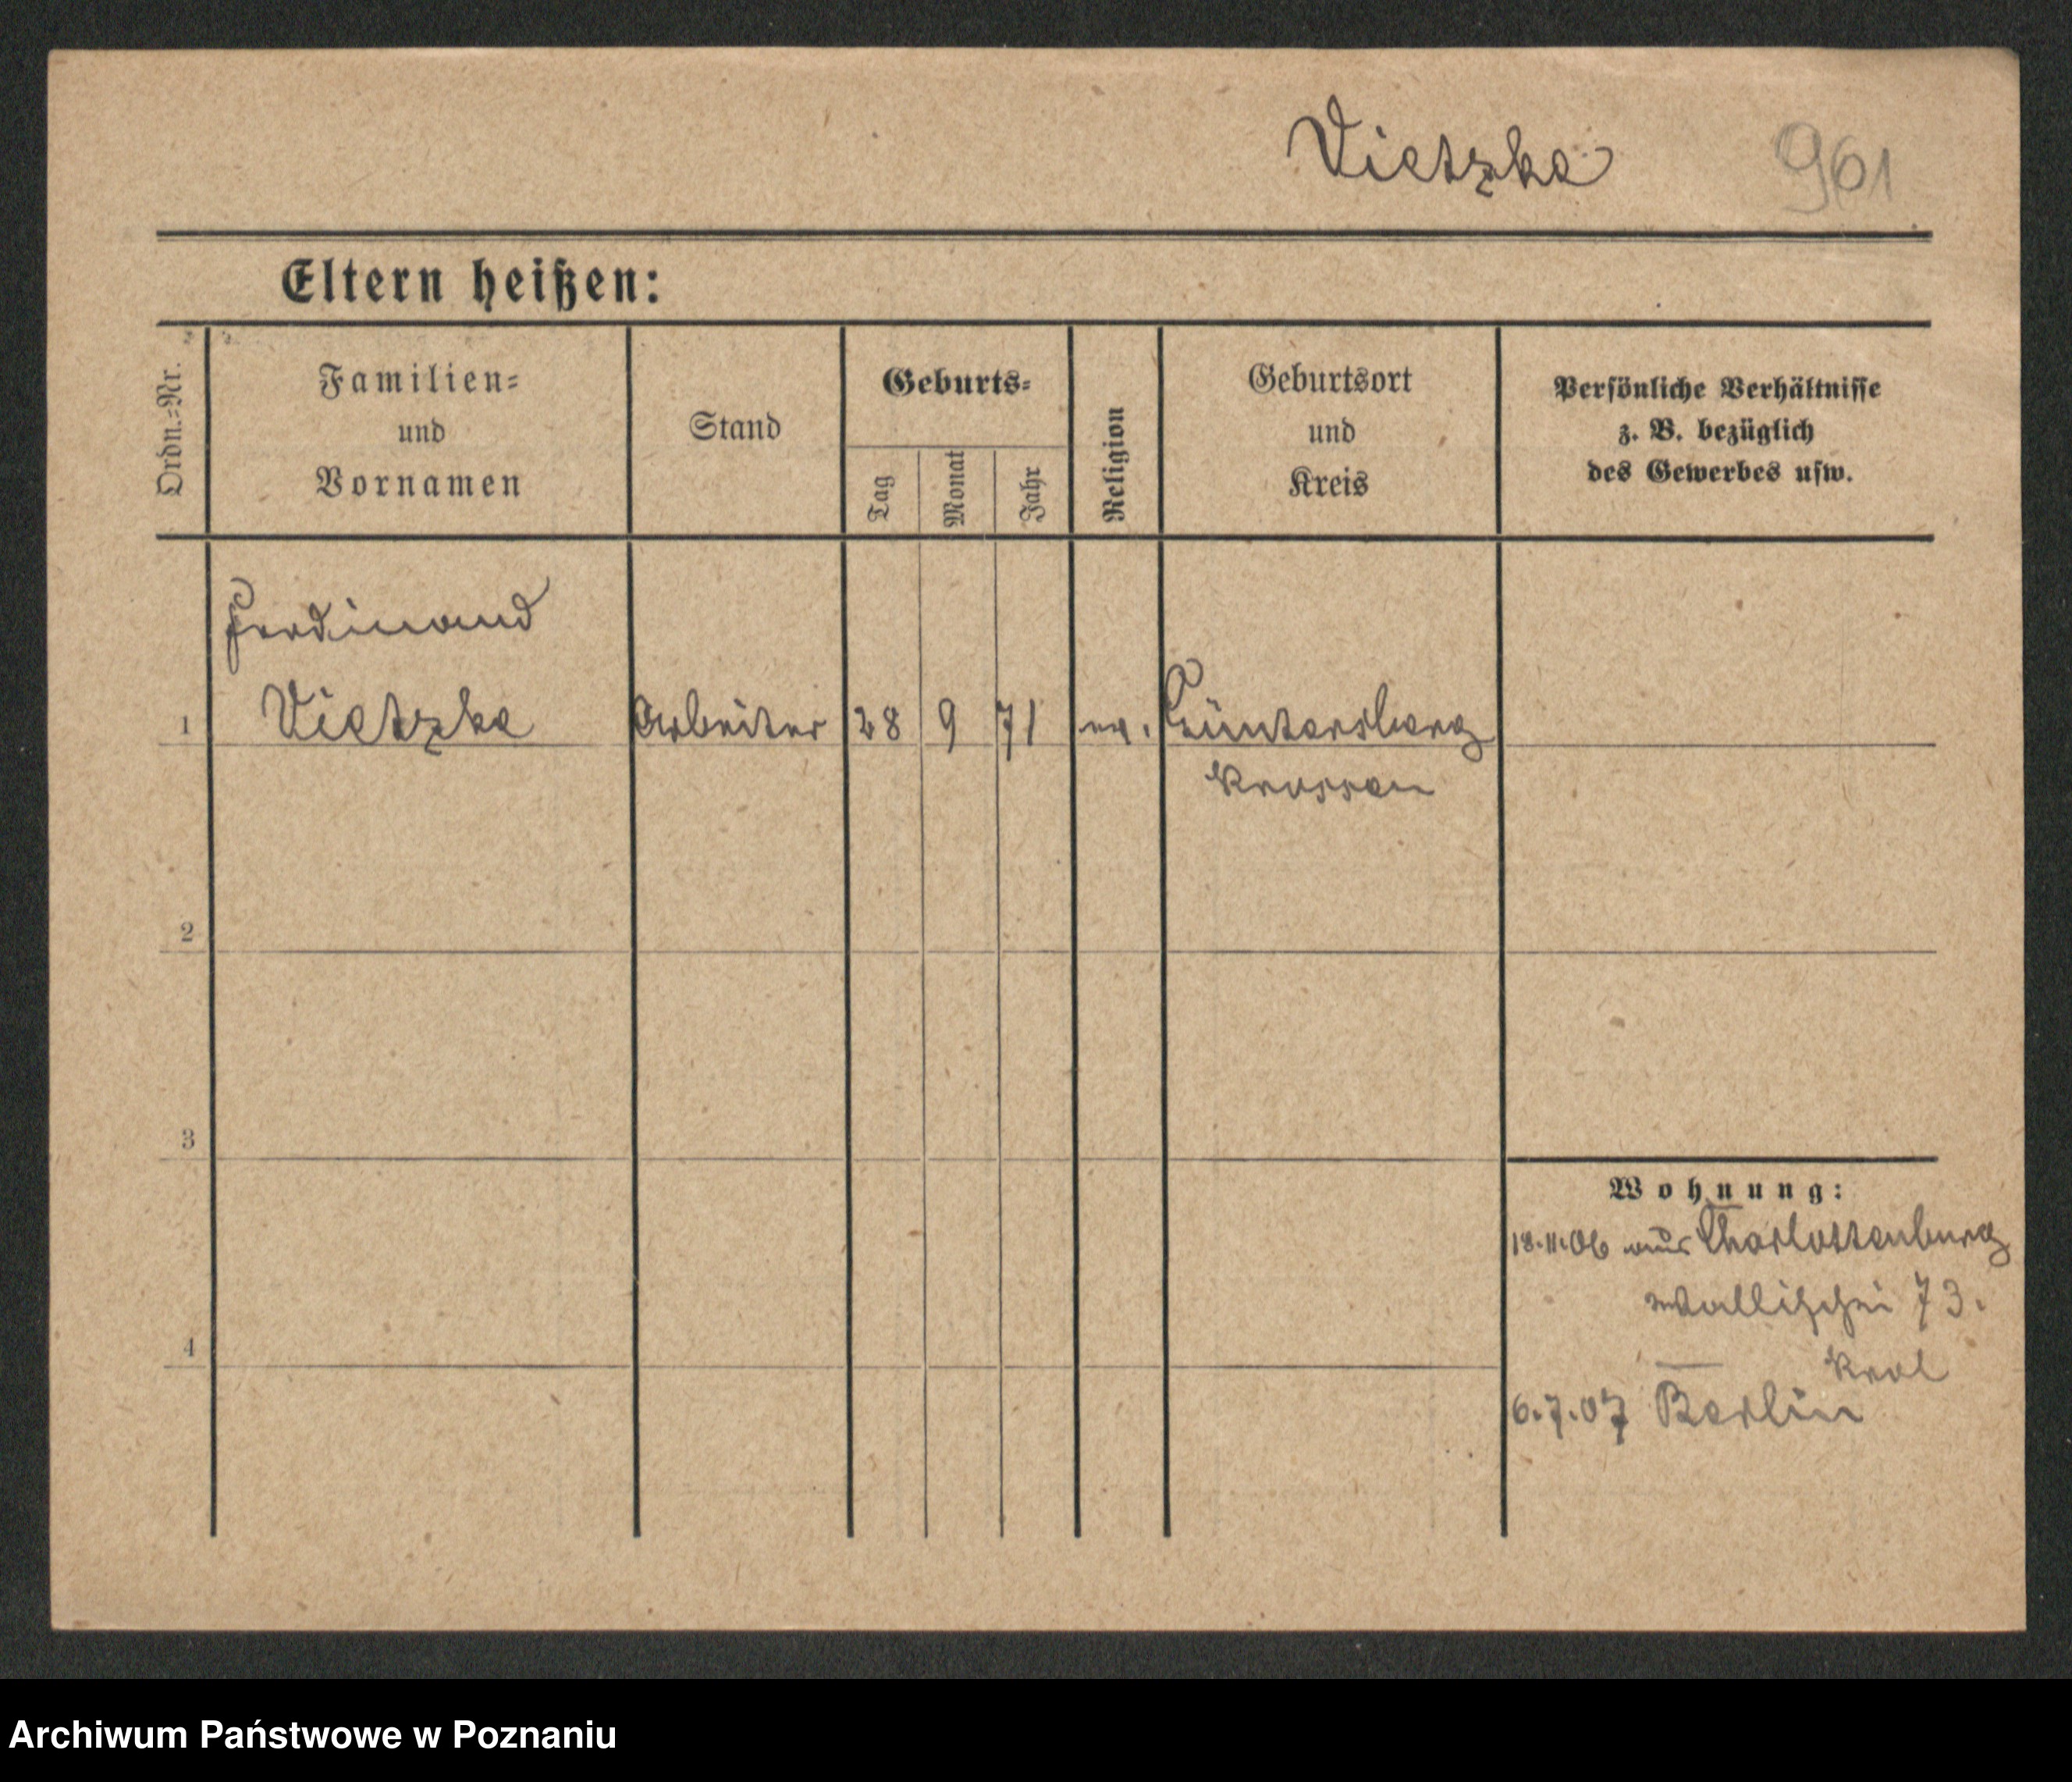 Vietzke 961
Eltern heißen:
Ordn.-Nr.
Familien-
und
Vornamen
Stand
Geburts-
Tag
Monat
Jahr
Religion
Geburtsort
und
Kreis
Persönliche Verhältnisse
z. B. bezüglich
des Gewerbes usw.
Ferdinand
1 Vietzke Arbeiter 28 9 71 ev. Güntersberg
Krossen
2
3
Wohnung:
18.11.06 aus Charlottenburg
Wallischei 73.
4
Krol
6.7.07 Berlin
Archiwum Państwowe w Poznaniu